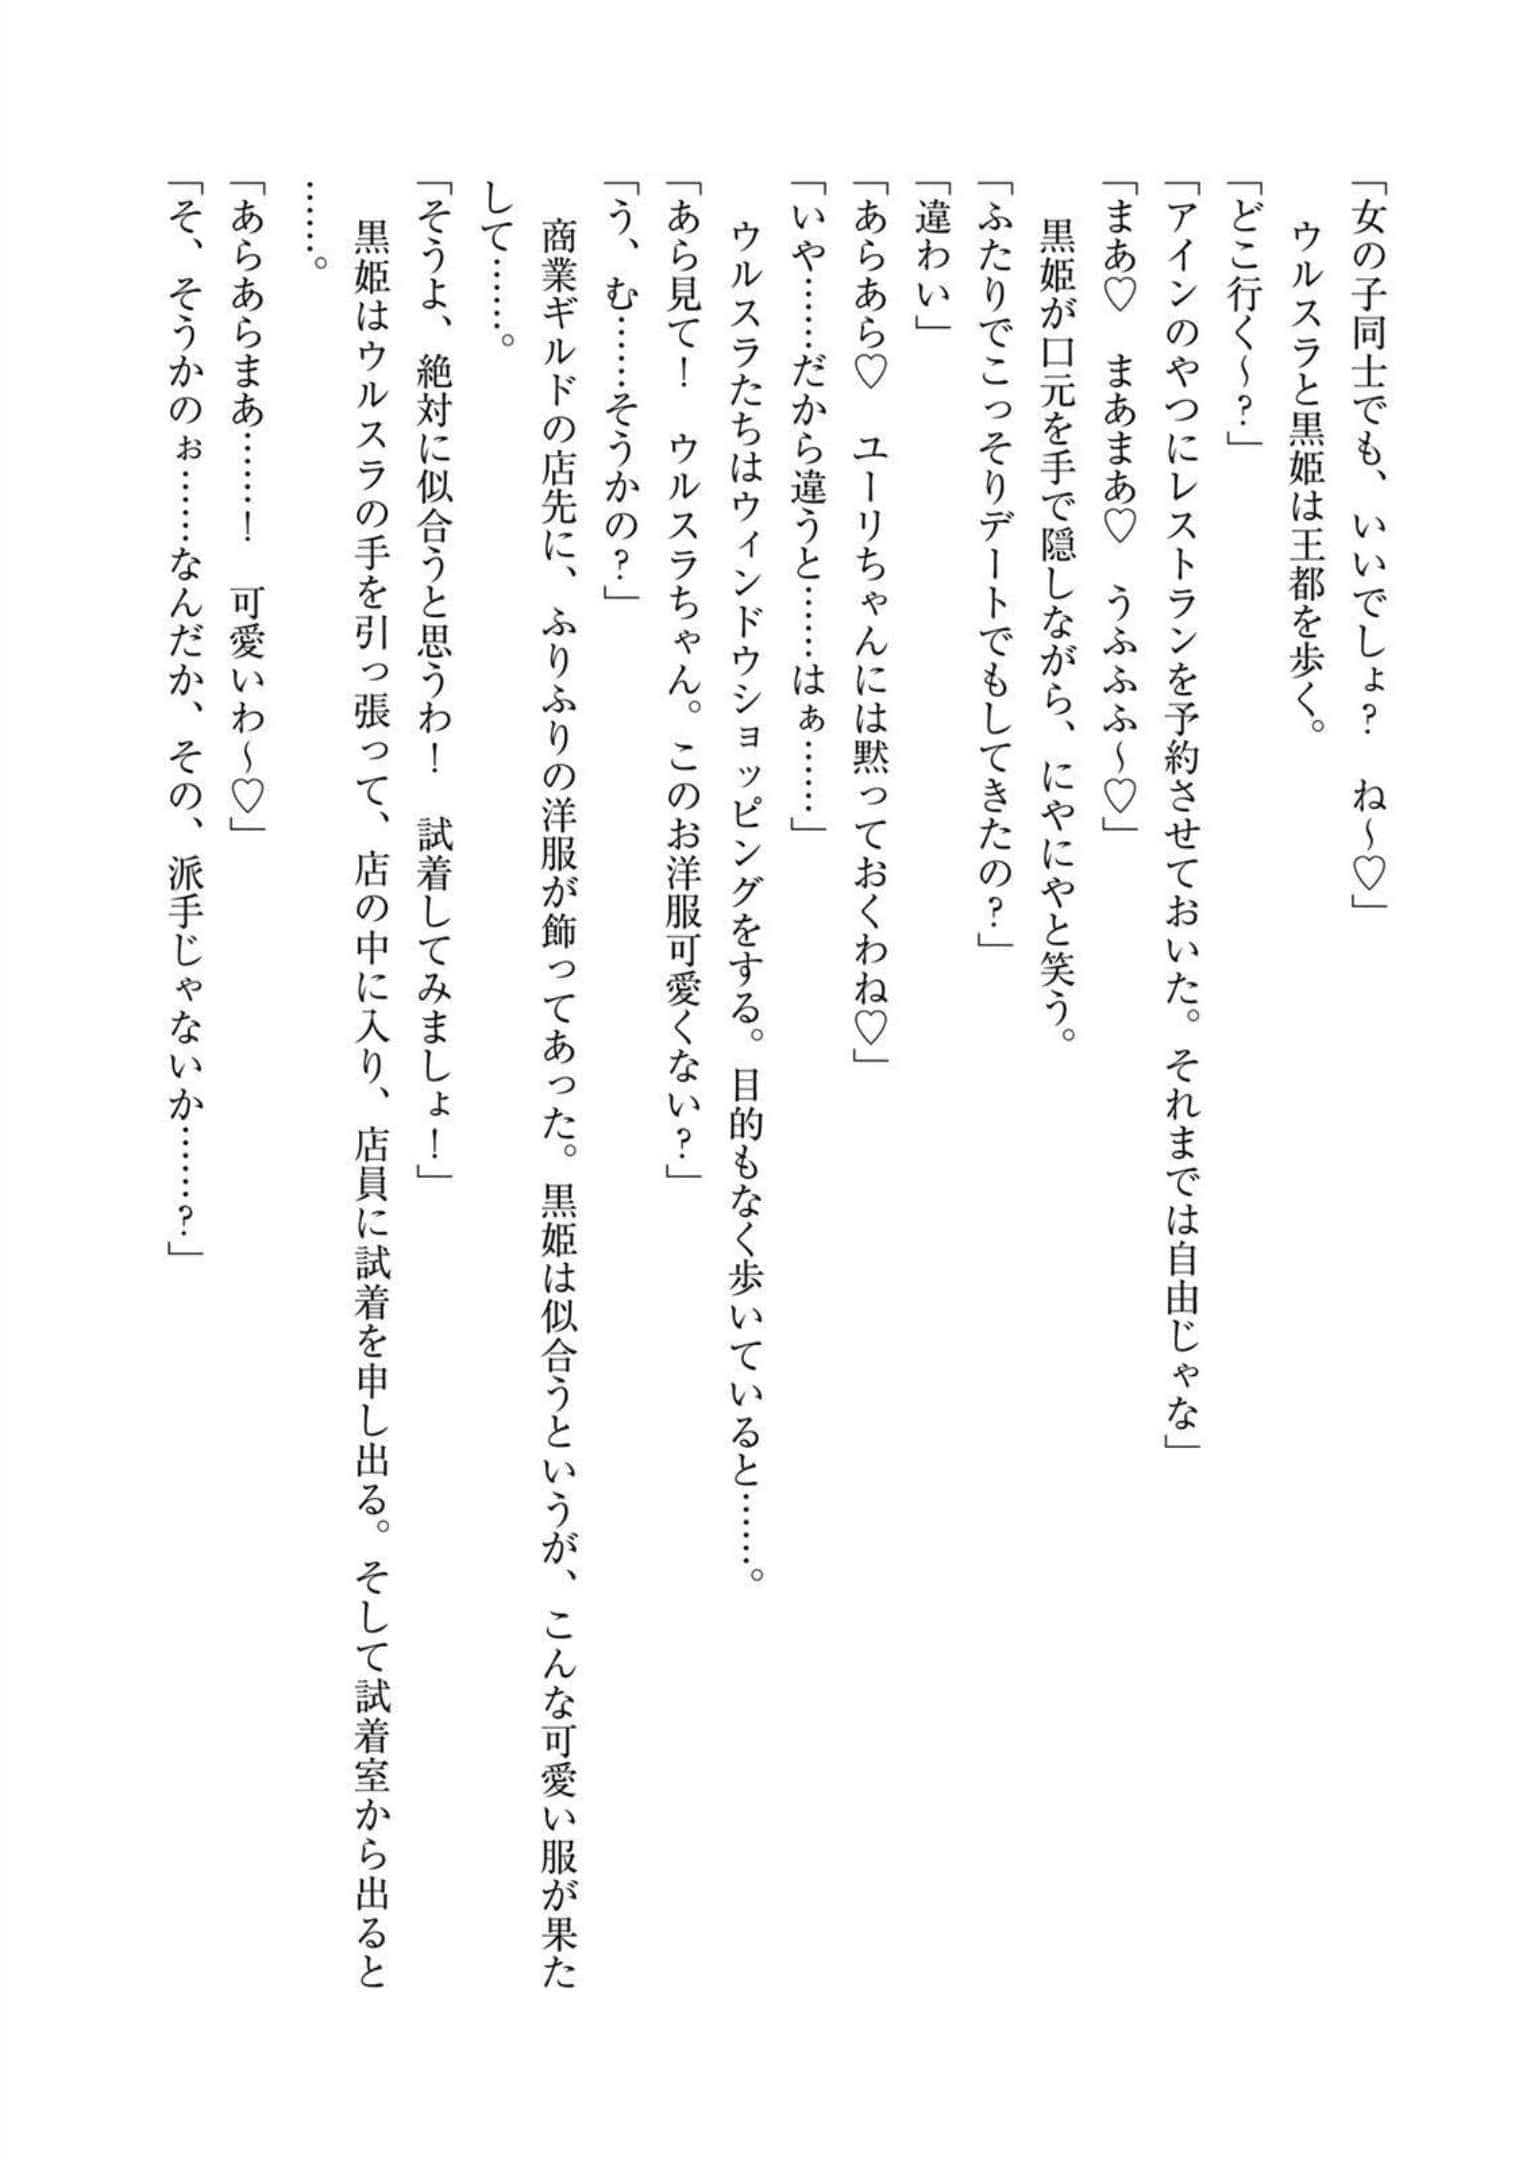 「女の子同士でも、いいでしょ？　ね～♡」
　ウルスラと黒姫は王都を歩く。
「どこ行く～？」
「アインのやつにレストランを予約させておいた。それまでは自由じゃな」
「まあ♡　まあまあ♡　うふふふ～♡」
　黒姫が口元を手で隠しながら、にやにやと笑う。
「ふたりでこっそりデートでもしてきたの？」
「違わい」
「あらあら♡　ユーリちゃんには黙っておくわね♡」
「いや……だから違うと……はぁ……」
　ウルスラたちはウィンドウショッピングをする。目的もなく歩いていると……。
「あら見て！　ウルスラちゃん。このお洋服可愛くない？」
「う、む……そうかの？」
　商業ギルドの店先に、ふりふりの洋服が飾ってあった。黒姫は似合うというが、こんな可愛い服が果た
して……。
「そうよ、絶対に似合うと思うわ！　試着してみましょ！」
　黒姫はウルスラの手を引っ張って、店の中に入り、店員に試着を申し出る。そして試着室から出ると
……。
「あらあらまあ……！　可愛いわ～♡」
「そ、そうかのぉ……なんだか、その、派手じゃないか……？」